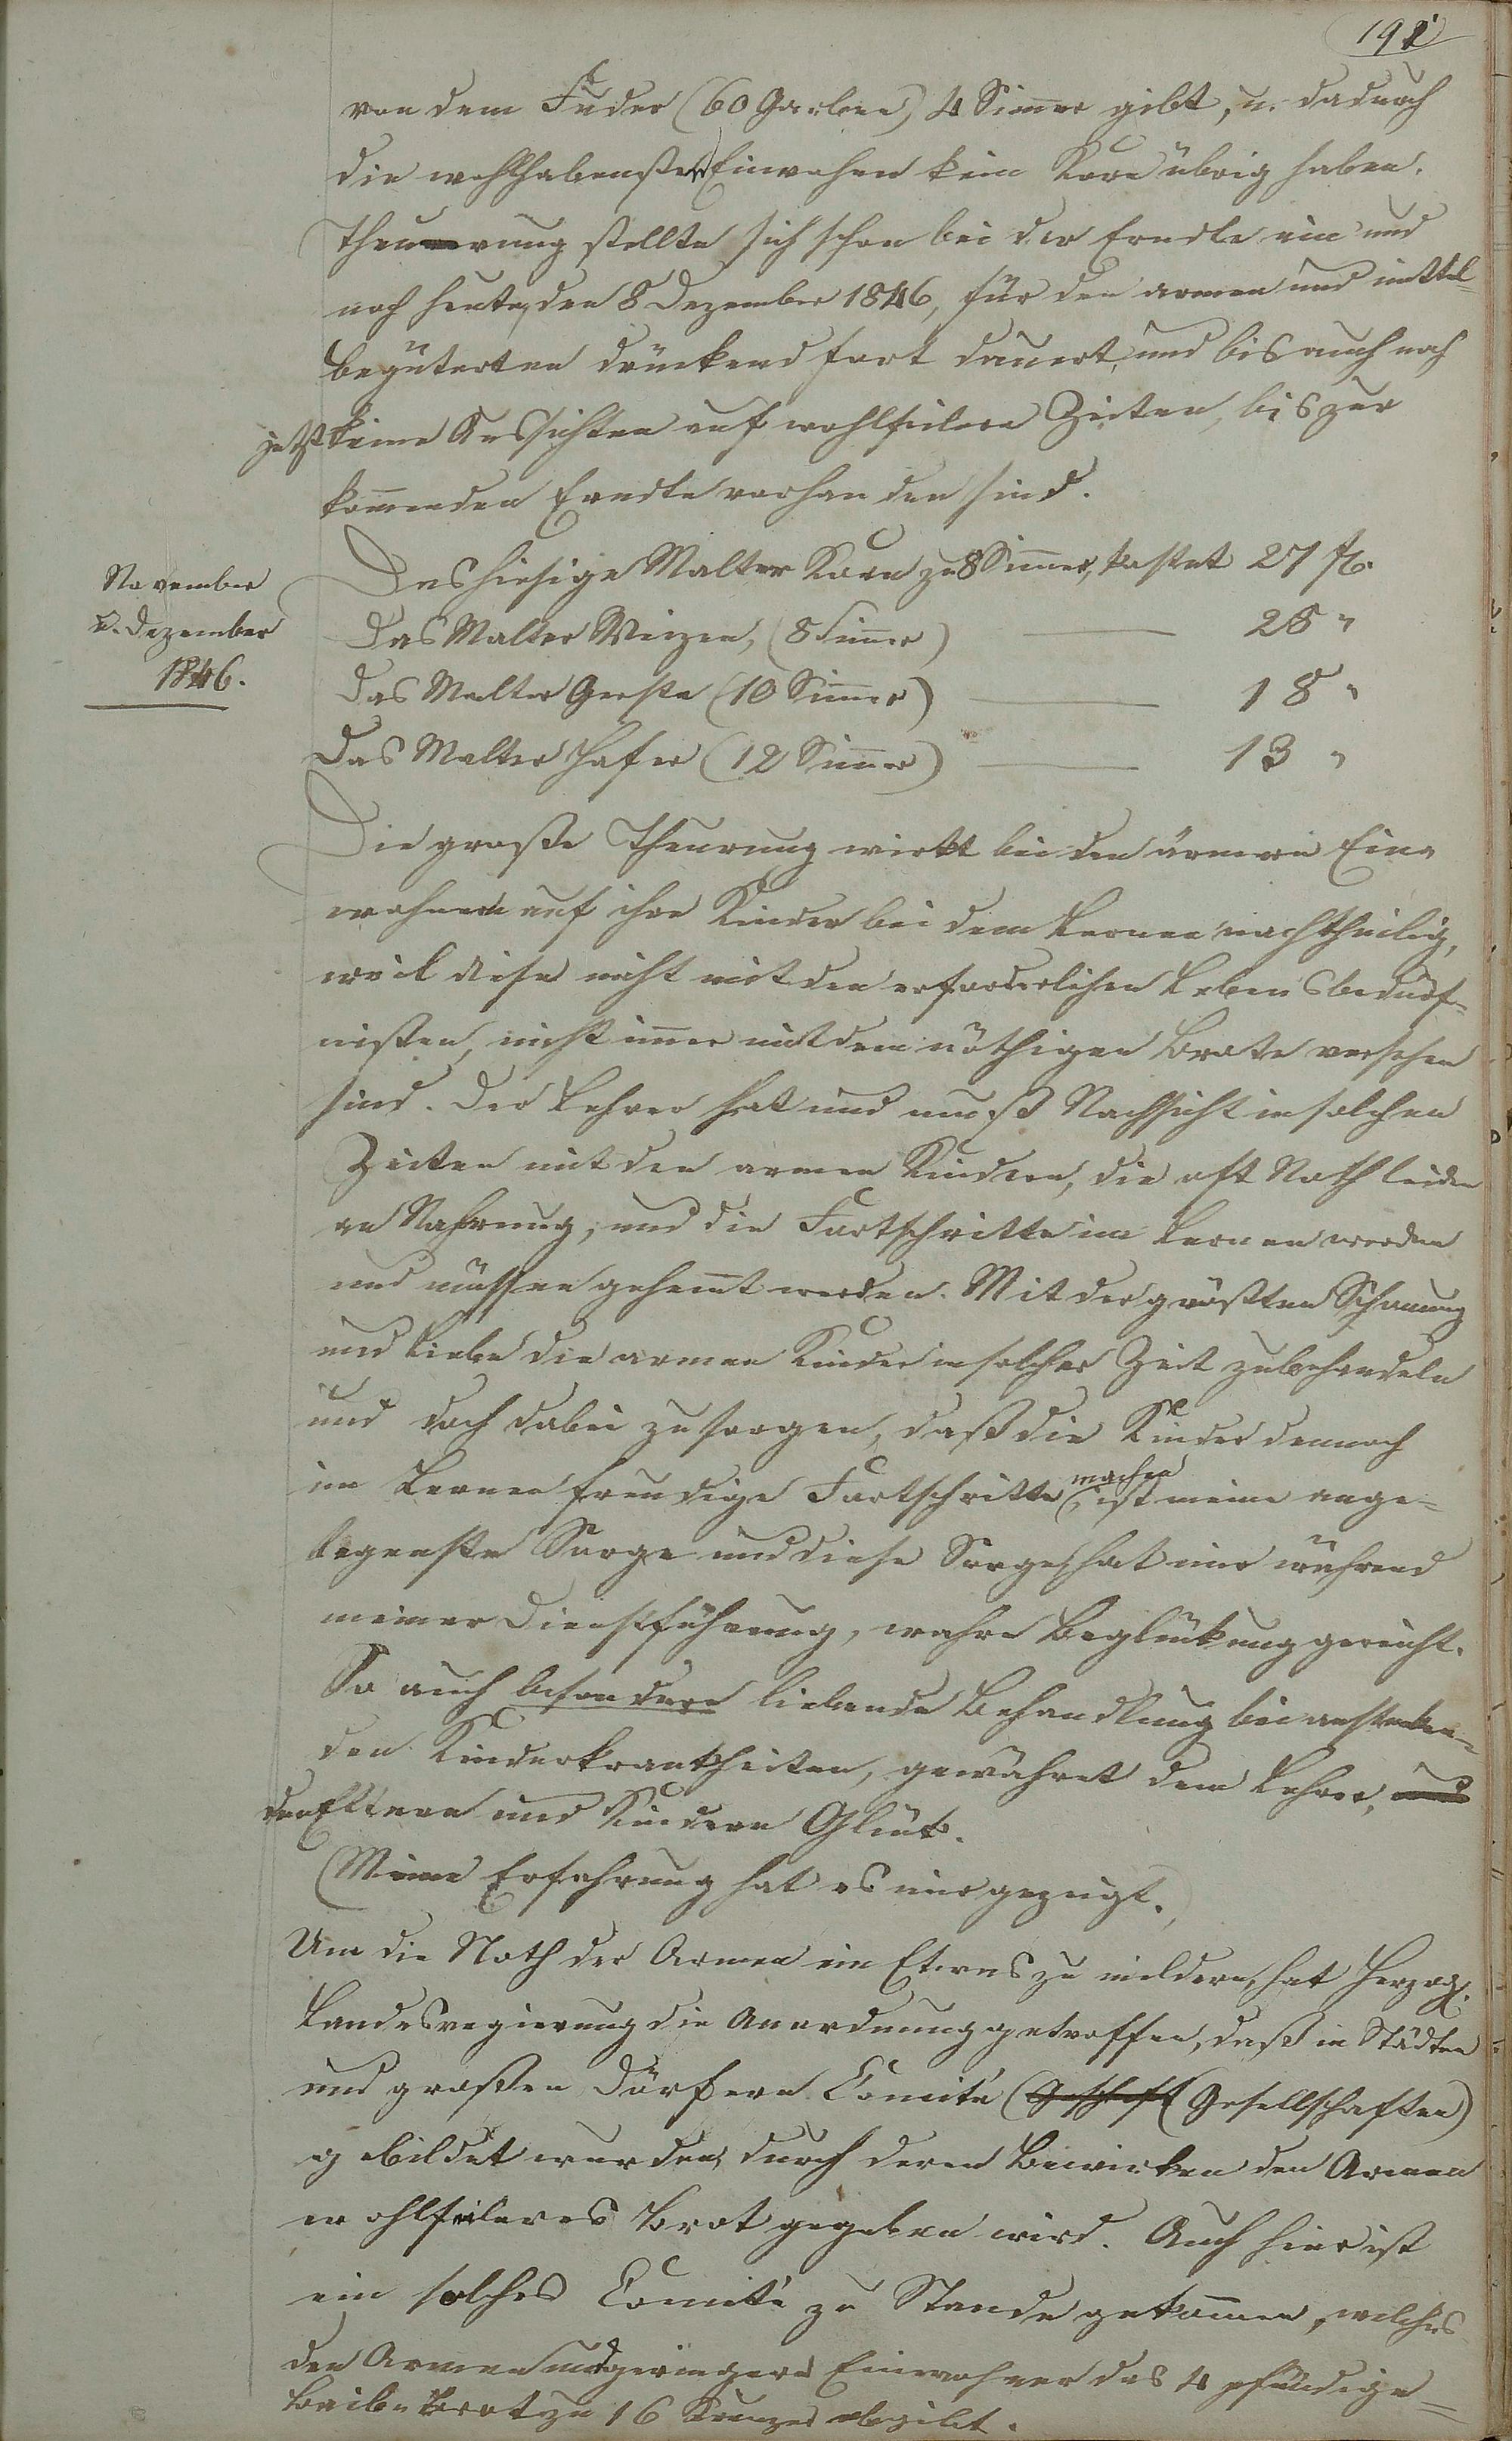 191
von dem Fuder (60 Garben) 4 Simmer gibt, u. dadurch
die wohlhabensten Einwohner kein Korn übrig haben.
Theuerung stellte sich schon bei der Erndte ein und
noch heute, den 8 Dezember 1846, für den armen und mittel-
begüterten drückend fort dauert, und bis auch noch
jetzt keine Aussichten auf wohlfeilere Zeiten, bis zur
kommenden Erndte vorhanden sind.
November
u. Dezember
1846.
Das hiesige Malter Korn zu 8 Simmer, kostet 27 fl.
Das Malter Weizen, (8 Simmer) — 28 "
Das Malter Gerste (10 Simmer) — 18 "
Das Malter Hafer (12 Simmer) — 13 "
Die große Theurung wirkt bei den ärmern Ein-
wohnern auf ihre Kinder bei dem Lernen nachtheilig,
weil diese nicht mit den erforderlichen Lebensbedürf-
nißen, nicht immer mit dem nöthigen Brote versehen
sind. Der Lehrer hat und muß Nachsicht in solchen
Zeiten mit den armen Kindern, die oft Noth leiden
an Nahrung, und die Fortschritte im Lernen werden
und müssen gehemt werden. Mit der größten Schonung
und Liebe die armen Kinder in solcher Zeit zu behandeln
und doch dabei zu sorgen, daß die Kinder dennoch
im Lernen freudige Fortschritte machen, ist meine ange-
legenste Sorge und diese Sorge hat mir während
meiner Dienstführung, wahre Beglückung gereicht.
So auch besondere liebende Behandlung bei ansteken-
den Kinderkrankheiten, gewähret dem Lehrer, und
den Eltern und Kindern Glück.
(Meine Erfahrung hat es mir gezeigt.)
Um die Noth der Armen in Etwas zu mildern, hat Herzogl.
Landesregierung die Anordnung getroffen, daß in Städten
und großen Dörfern Comité (Geschaft (Gesellschaften)
gebildet wurden, durch deren Beiwirken den Armen
wohlfeileres Brot gegeben wird. Auch hier ist
ein solches Comité zu Stande gekommen, welches
den Armen und geringern Einwohner das 4 pfündige-
Laib-Brot zu 16 Kreuzer abgibt.